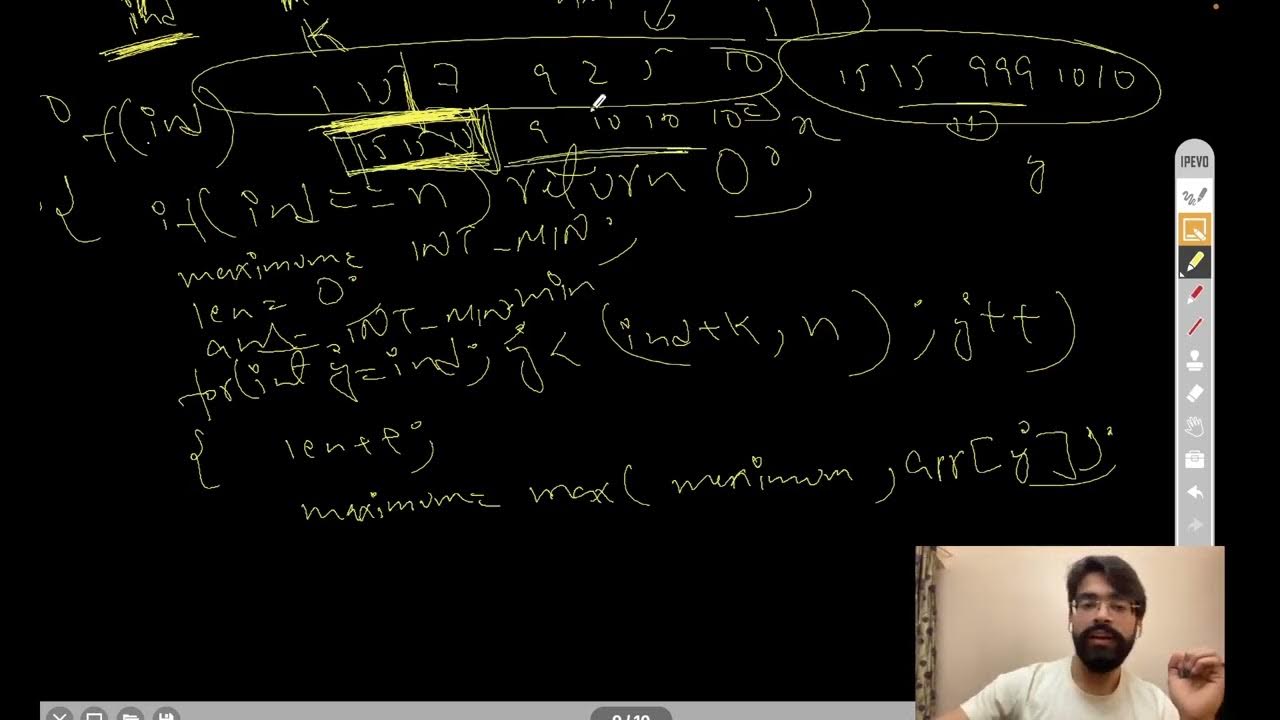 ind
K
1 15 7 9 2 5 10 15 15 9 9 9 10 10
f(ind)
15 15 10 9 10 10 10 x
y
{ if(ind==n) return 0;
maximum= INT_MIN;
len= 0;
ans= INT_MIN min
for(int j=ind; j< (ind+k, n) ; j++)
{ len++;
maximum= max( maximum ,arr[j]);
IPEVO